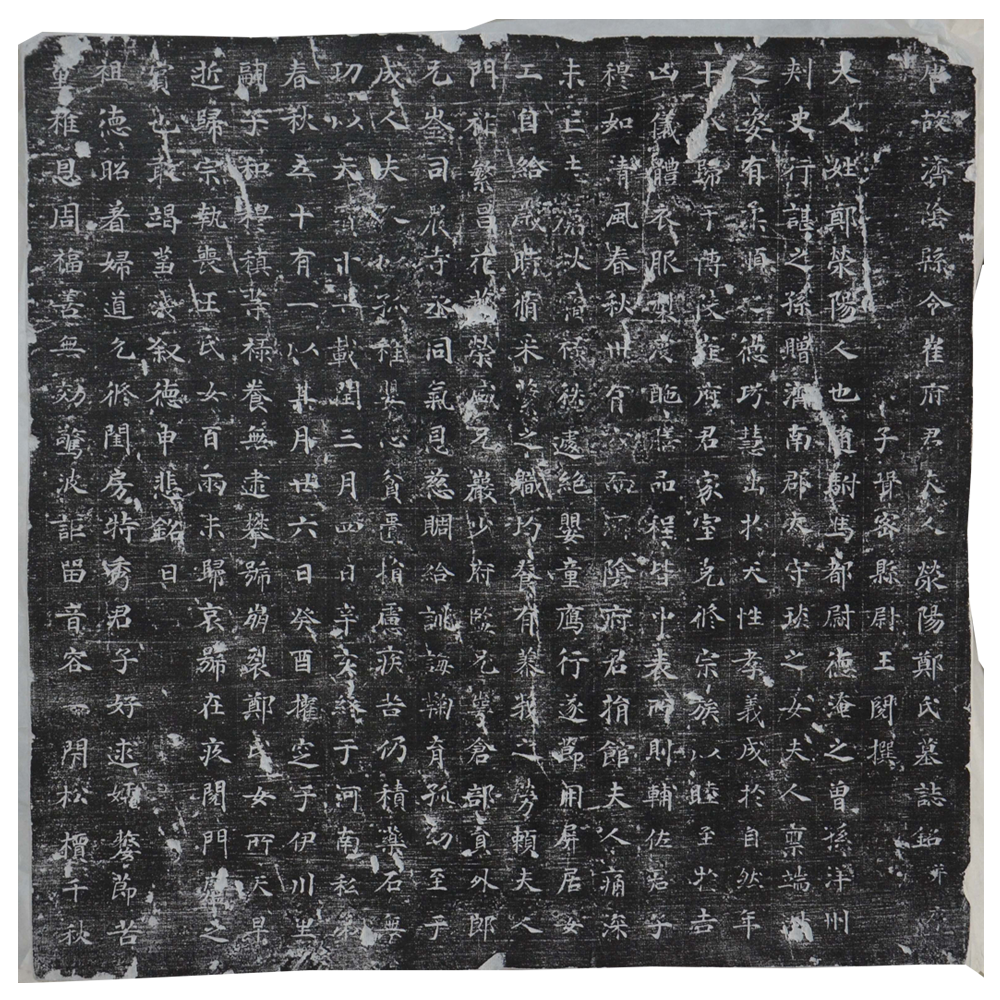 唐故濟陰縣令崔府君夫人滎陽鄭氏墓誌銘并序
子壻密縣尉王閱撰
夫人姓鄭滎陽人也隨駙馬都尉德淹之曾孫洋州
刾史行諶之孫贈濟南郡太守琰之女夫人稟端淑
之姿有柔順之德巧慧出於天性孝義成於自然年
十八歸于博陵崔府君家室克修宗族以睦至於吉
凶儀體衣服製度酏膳品程皆中表所則輔佐君子
穆如清風春秋卅有六而濟陰府君捐館夫人痛深
未亡志 以 遽絕嬰童鴈行遂罄用屏居女
工自給歲時脩釆蘩之職均養有兼我之勞賴夫人
門祚繁昌花萼榮盛兄嚴少府 兄 倉部員外郎
兄崟司農寺丞同氣恩慈賙給訓誨鞠育孤幼至乎
成人夫人以孤稚嬰心貧 損慮疾苦仍積藥石無
功以天寶十二載閏三月四日辛亥終于河南私第
春秋五十有一以其月廿六日癸酉權窆于伊川里
嗣子和穆稹等祿養無逮攀號崩裂鄭氏女所天早
逝歸宗執喪王氏女百兩未歸哀號在疚閱門 之
賓也敢竭蒭 叙德申悲銘曰
祖德昭著婦道允修閨房特秀君子好逑孀嫠節苦
孤稚恩周福善無効驚波詎留音容一閇松檟千秋